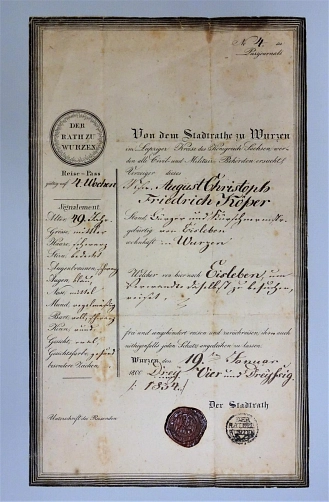 № 4. des
Passjournals
DER
RATH ZU
WURZEN
Reise-Pass
gültig auf 4 Wochen
Signalement
Alter 49 Jahr
Grösse mittler
Haare schwarz
Stirn bedeckt
Augenbraunen schwarz
Augen blau
Nase mittel
Mund regelmäßig
Bart
Kinn rund
Gesicht oval
Gesichtsfarbe gesund
besondere Zeichen
Unterschrift des Reisenden
Von dem Stadtrathe zu Wurzen
im Leipziger Kreise des Königreichs Sachsen wer-
den alle Civil und Militair-Behörden ersucht
Vorzeiger dieses
August Christoph
Friedrich Köper
Stand Bürger und
gebürtig von Eisleben
wohnhaft in Wurzen
Welcher von hier nach Eisleben, um
Verwandte daselbst zu besuchen,
reiset
frei und ungehindert reisen und zurückreisen, ihm auch
nöthigenfalls guten Schutz angedeihen zu lassen.
Wurzen den 19ten Januar
1800 Vier und Dreyßig
/: 1834. /:
Der Stadtrath
DER
RATH ZU
WURZEN